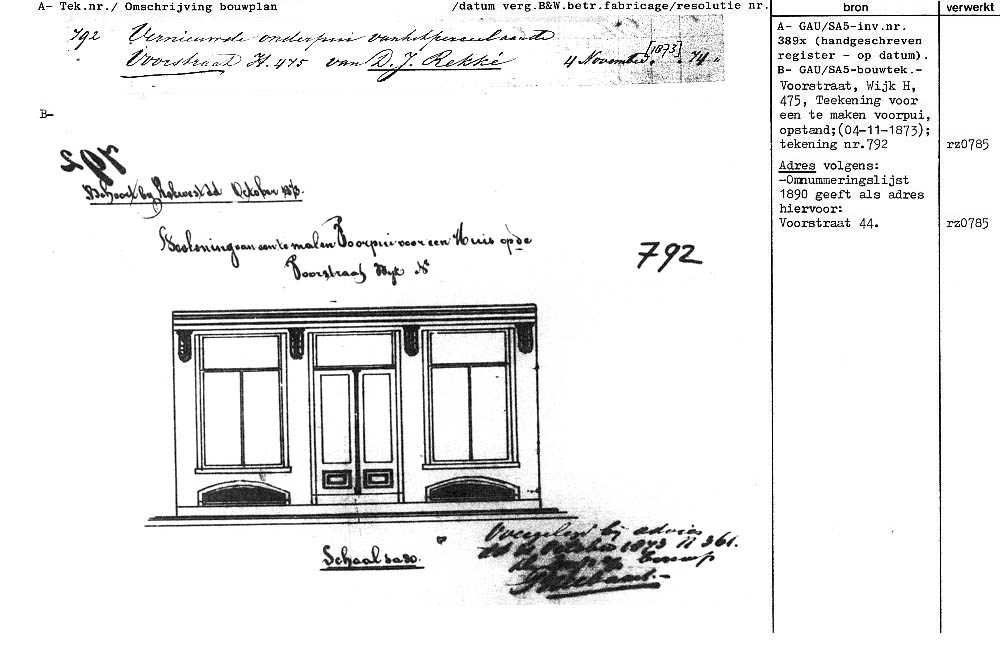 A- Tek.nr./ Omschrijving bouwplan /datum verg.B&W.betr.fabricage/resolutie nr.
792 Vernieuwde onderpui van het perceel aan de
Voorstraat H. 475 van D. J. Rekké 4 November [1873] 74.
B-
792
Behoort by Rekwest dd October 1873.
Teekening van een te maken Voorpui voor een Huis op de
Voorstraat Wyk No
792
Schaal 1 a 50.
Voorgelezen bij advies
October 1873 N 361.
bron
A- GAU/SA5-inv.nr.
389x (handgeschreven
register - op datum).
B- GAU/SA5-bouwtek.-
Voorstraat, Wijk H,
475, Teekening voor
een te maken voorpui,
opstand;(04-11-1873);
tekening nr.792
Adres volgens:
-Omnummeringslijst
1890 geeft als adres
hiervoor:
Voorstraat 44.
verwerkt
rz0785
rz0785